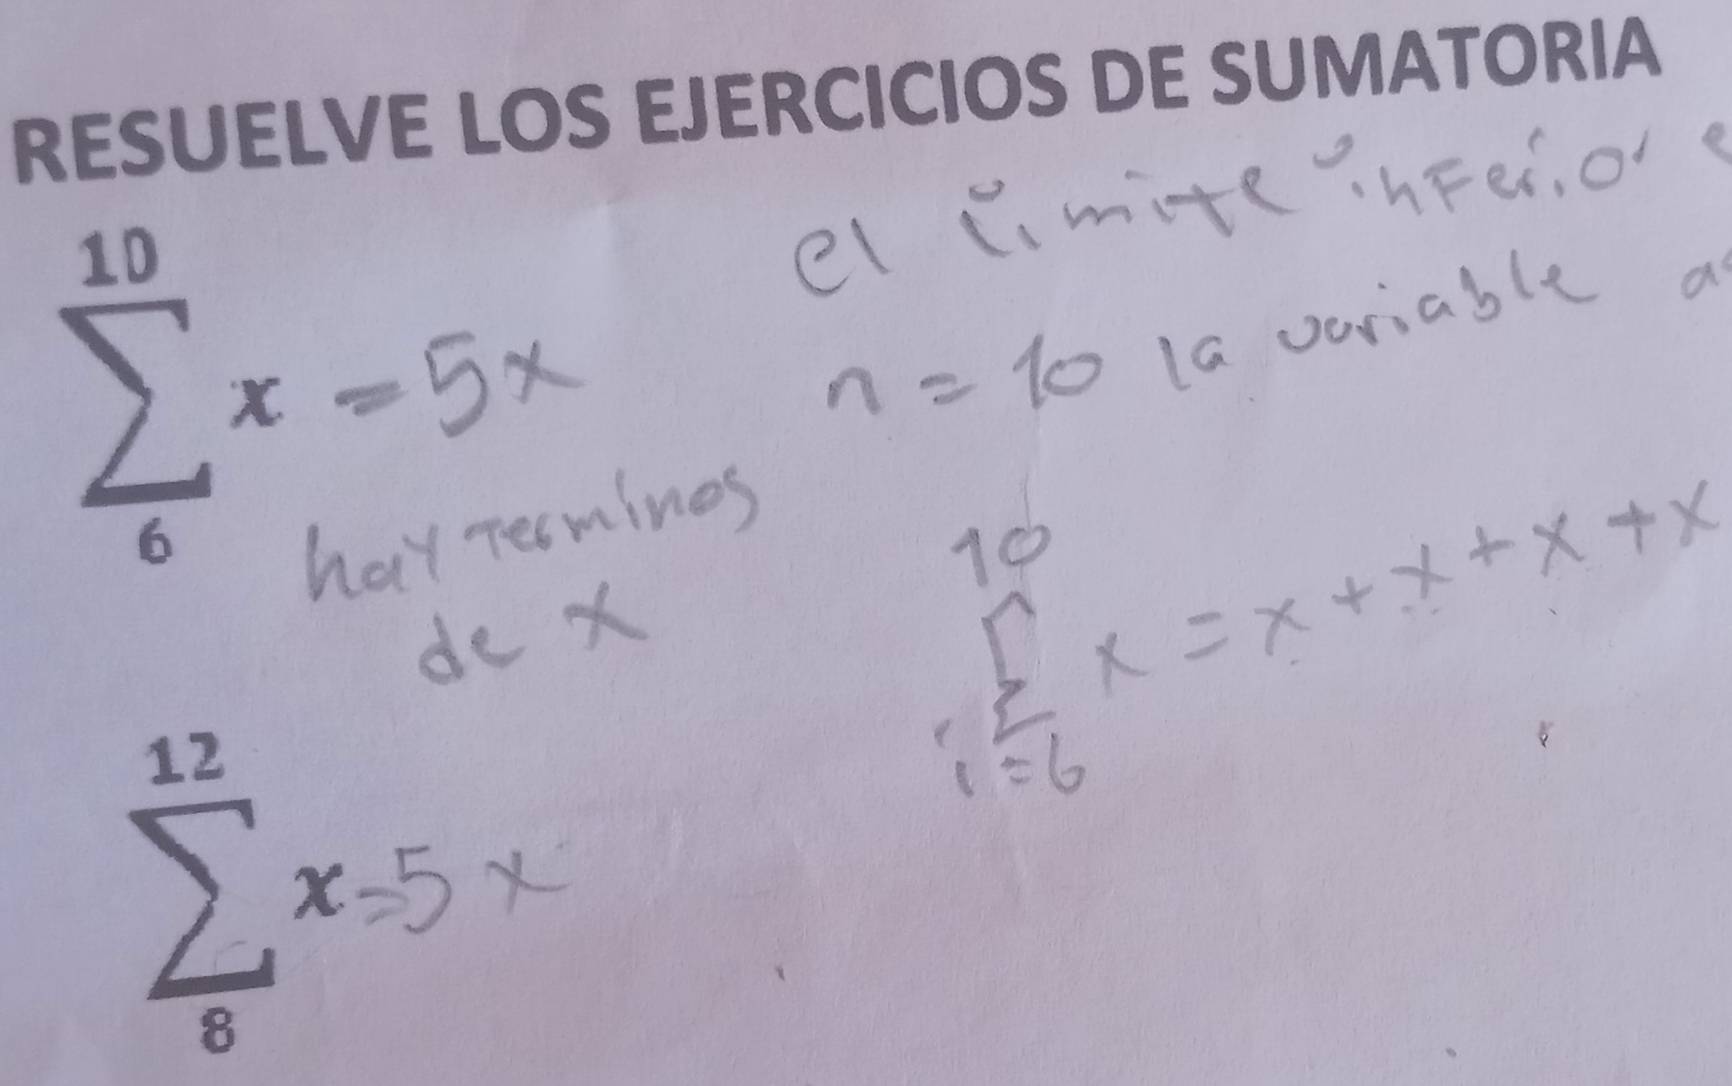 RESUELVE LOS EJERCICIOS DE SUMATORIA
el limite inferior e
n = 10 la variable a
10
∑ x = 5x
6
hay terminos
de x
10
∑ x = x + x + x + x
i = 6
12
∑ x = 5x
8